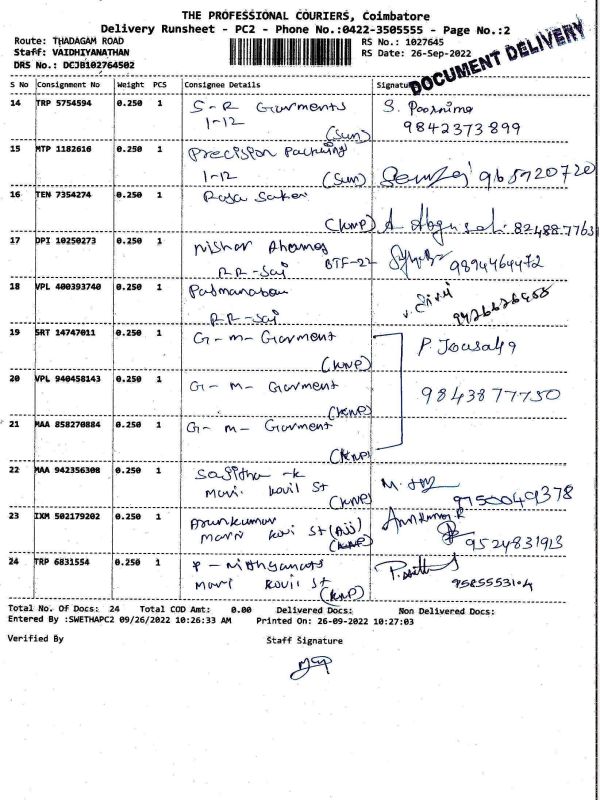 THE PROFESSIONAL COURIERS, Coimbatore
Delivery Runsheet - PC2 - Phone No.:0422-3505555 - Page No.:2
Route: THADAGAM ROAD
RS No.: 1027645
Staff: VAIDHIYANATHAN
RS Date: 26-Sep-2022
DRS No.: DCJB102764502
DOCUMENT DELIVERY
S No Consignment No Weight PCS Consignee Details Signature
14 TRP 5754594 0.250 1 S-R Garments S. Poornima
1-12 (Sun) 9842373899
15 MTP 1182616 0.250 1 Precision Packing
1-12 (Sun) 965720720
16 TEN 7354274 0.250 1 Raja
(KNP) A 824887763
17 DPI 10250273 0.250 1 Nishar Ahamed
RR-Sai BTF-22 9894464472
18 VPL 400393740 0.250 1 Padmanaban
RR-Sai
19 SRT 14747011 0.250 1 G-m-Garment P.
(KNP)
20 VPL 940458143 0.250 1 G-m-Garment 9843877750
(KNP)
21 MAA 858270884 0.250 1 G-m-Garment
(KNP)
22 MAA 942356308 0.250 1 Sajitha -K M.
Mari Kovil St (KNP) 9750049378
23 IXM 502179202 0.250 1 Arunkumar Arunkumar R
Marri Kovi St (KNP) 9524831913
24 TRP 6831554 0.250 1 P-
Mari Kovil St (KNP)
Total No. Of Docs: 24 Total COD Amt: 0.00 Delivered Docs: Non Delivered Docs:
Entered By :SWETHAPC2 09/26/2022 10:26:33 AM Printed On: 26-09-2022 10:27:03
Verified By Staff Signature